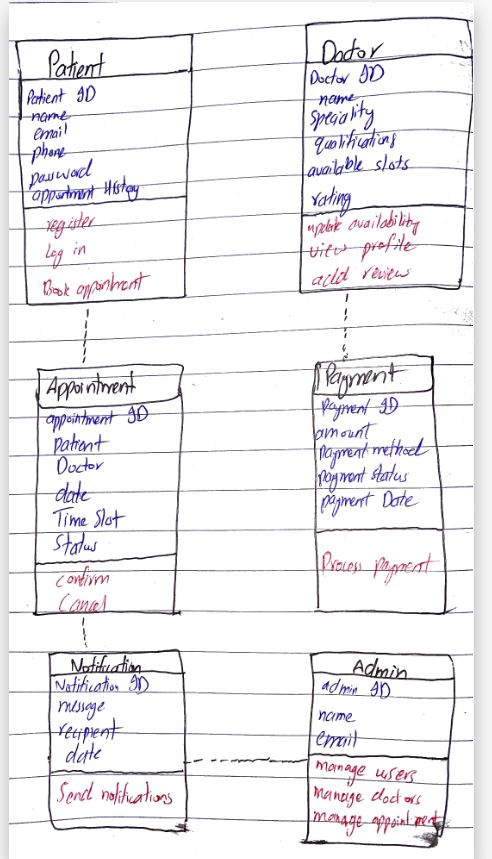 Patient
Patient ID
name
email
phone
password
appointment History
register
Log in
Book appointment
Doctor
Doctor ID
name
Speciality
qualifications
available slots
rating
update availability
view profile
add review
Appointment
appointment ID
Patient
Doctor
date
Time Slot
Status
Confirm
Cancel
Payment
Payment ID
amount
Payment method
Payment status
payment Date
Process payment
Notification
Notification ID
message
recipient
date
Send notifications
Admin
admin ID
name
email
manage users
manage doctors
manage appointment